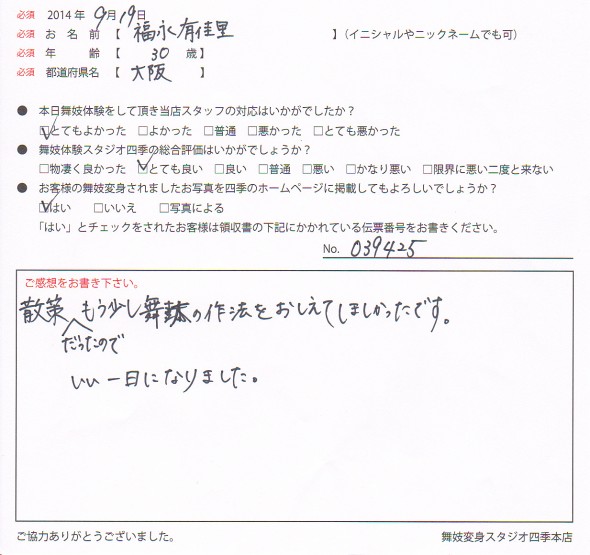 必須 2014年 9月19日
必須 お名前【 福永有佳里 】(イニシャルやニックネームでも可)
必須 年齢【 30 歳】
必須 都道府県名【 大阪 】
● 本日舞妓体験をして頂き当店スタッフの対応はいかがでしたか？
☑とてもよかった □よかった □普通 □悪かった □とても悪かった
● 舞妓体験スタジオ四季の総合評価はいかがでしょうか？
□物凄く良かった ☑とても良い □良い □普通 □悪い □かなり悪い □限界に悪い二度と来ない
● お客様の舞妓変身されましたお写真を四季のホームページに掲載してもよろしいでしょうか？
☑はい □いいえ □写真による
「はい」とチェックをされたお客様は領収書の下記にかかれている伝票番号をお書きください。
No. 039425
ご感想をお書き下さい。
散策 もう少し舞の作法をおしえてしましかったです。
だったので
いい一日になりました。
ご協力ありがとうございました。
舞妓変身スタジオ四季本店